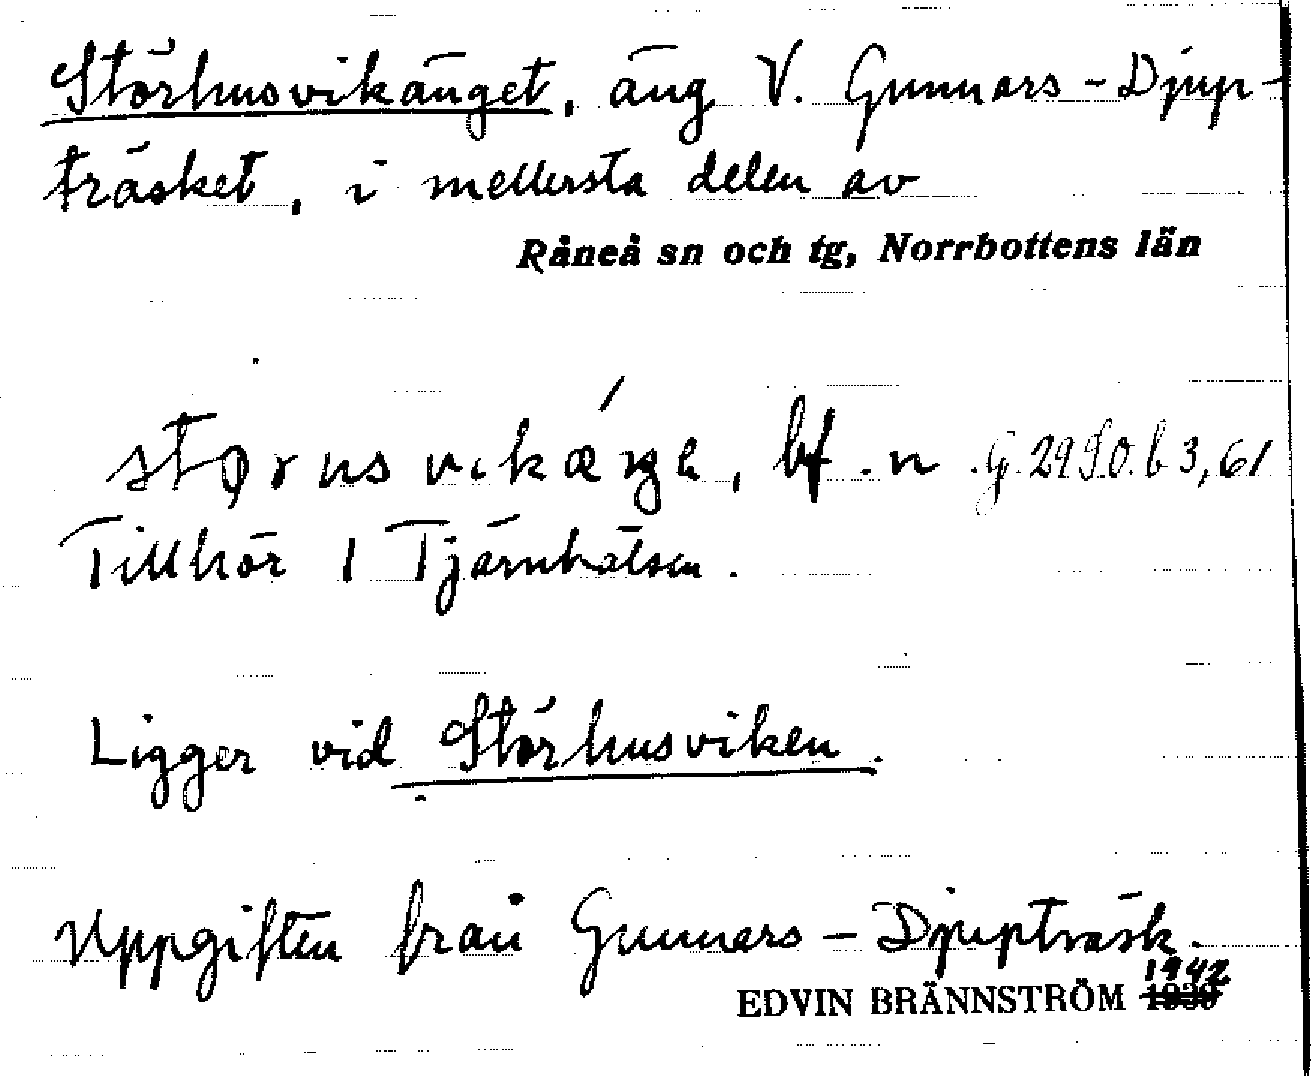 Störhusvikänget, äng V. Gunnars-Djup-
träsket, i mellersta delen av
Råneå sn och tg, Norrbottens län
bf. n G. 2950. b 3, 61
Tillhör 1 Tjärnhalsen.
Ligger vid Störhusviken.
Uppgiften från Gunnars-Djupträsk.
1942
EDVIN BRÄNNSTRÖM 1930